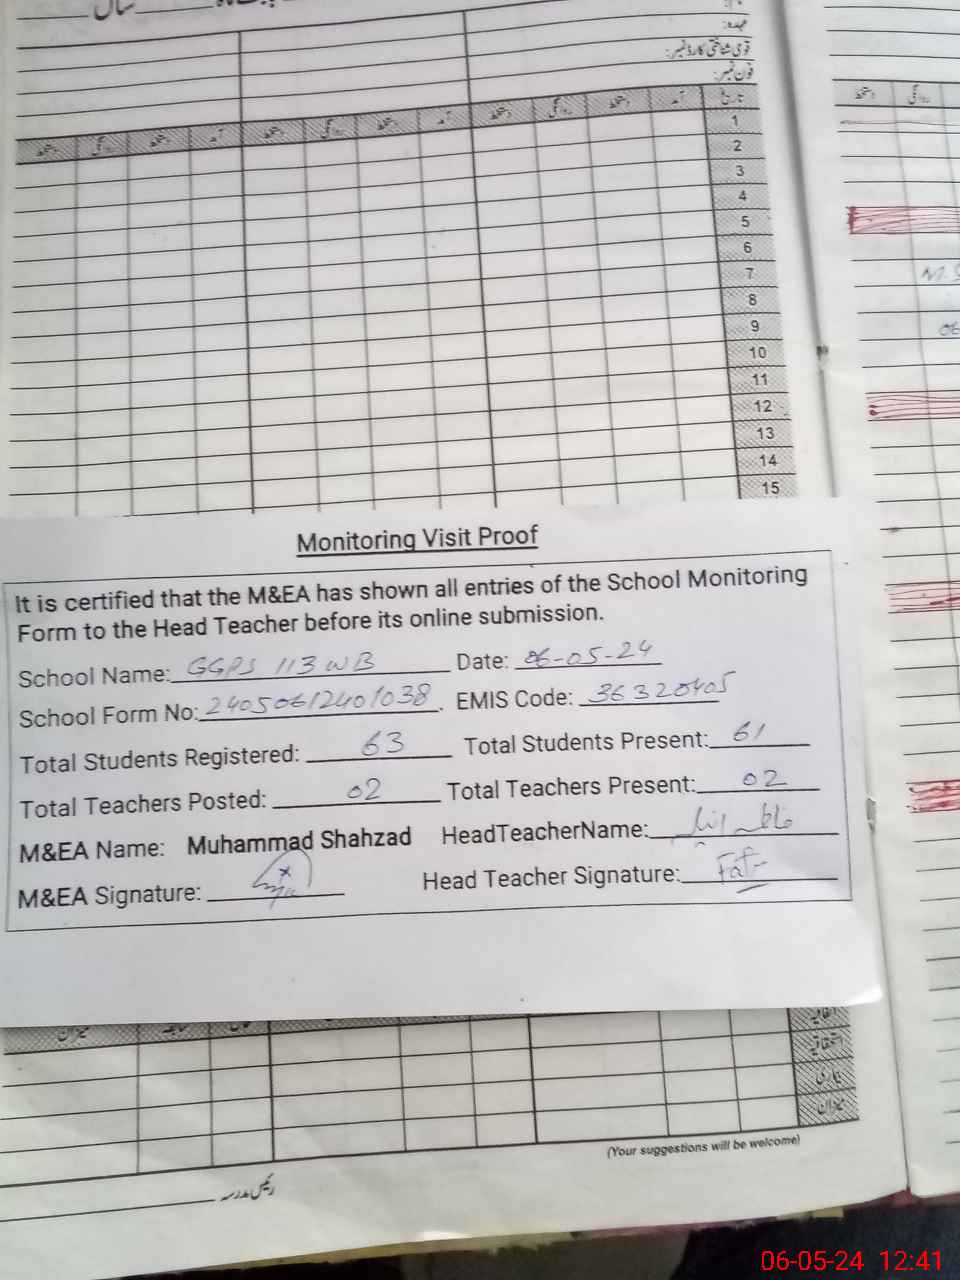 سال
عہدہ:
قومی شناختی کارڈ نمبر:
فون نمبر:
تاریخ آمد دستخط روانگی دستخط آمد دستخط روانگی دستخط آمد دستخط روانگی دستخط
روانگی دستخط
1
2
3
4
5
6
7
8
9
10
11
12
13
14
15
Monitoring Visit Proof
It is certified that the M&EA has shown all entries of the School Monitoring
Form to the Head Teacher before its online submission.
School Name: GGPS 113 WB Date: 06-05-24
School Form No: 24050612401038. EMIS Code: 36320405
Total Students Registered: 63 Total Students Present: 61
Total Teachers Posted: 02 Total Teachers Present: 02
M&EA Name: Muhammad Shahzad HeadTeacherName:
M&EA Signature: Head Teacher Signature:
اتفاقیہ
استحقاقیہ
بیماری
میزان
میزان سابقہ حال
(Your suggestions will be welcome)
رئیس مدرسہ
06-05-24 12:41